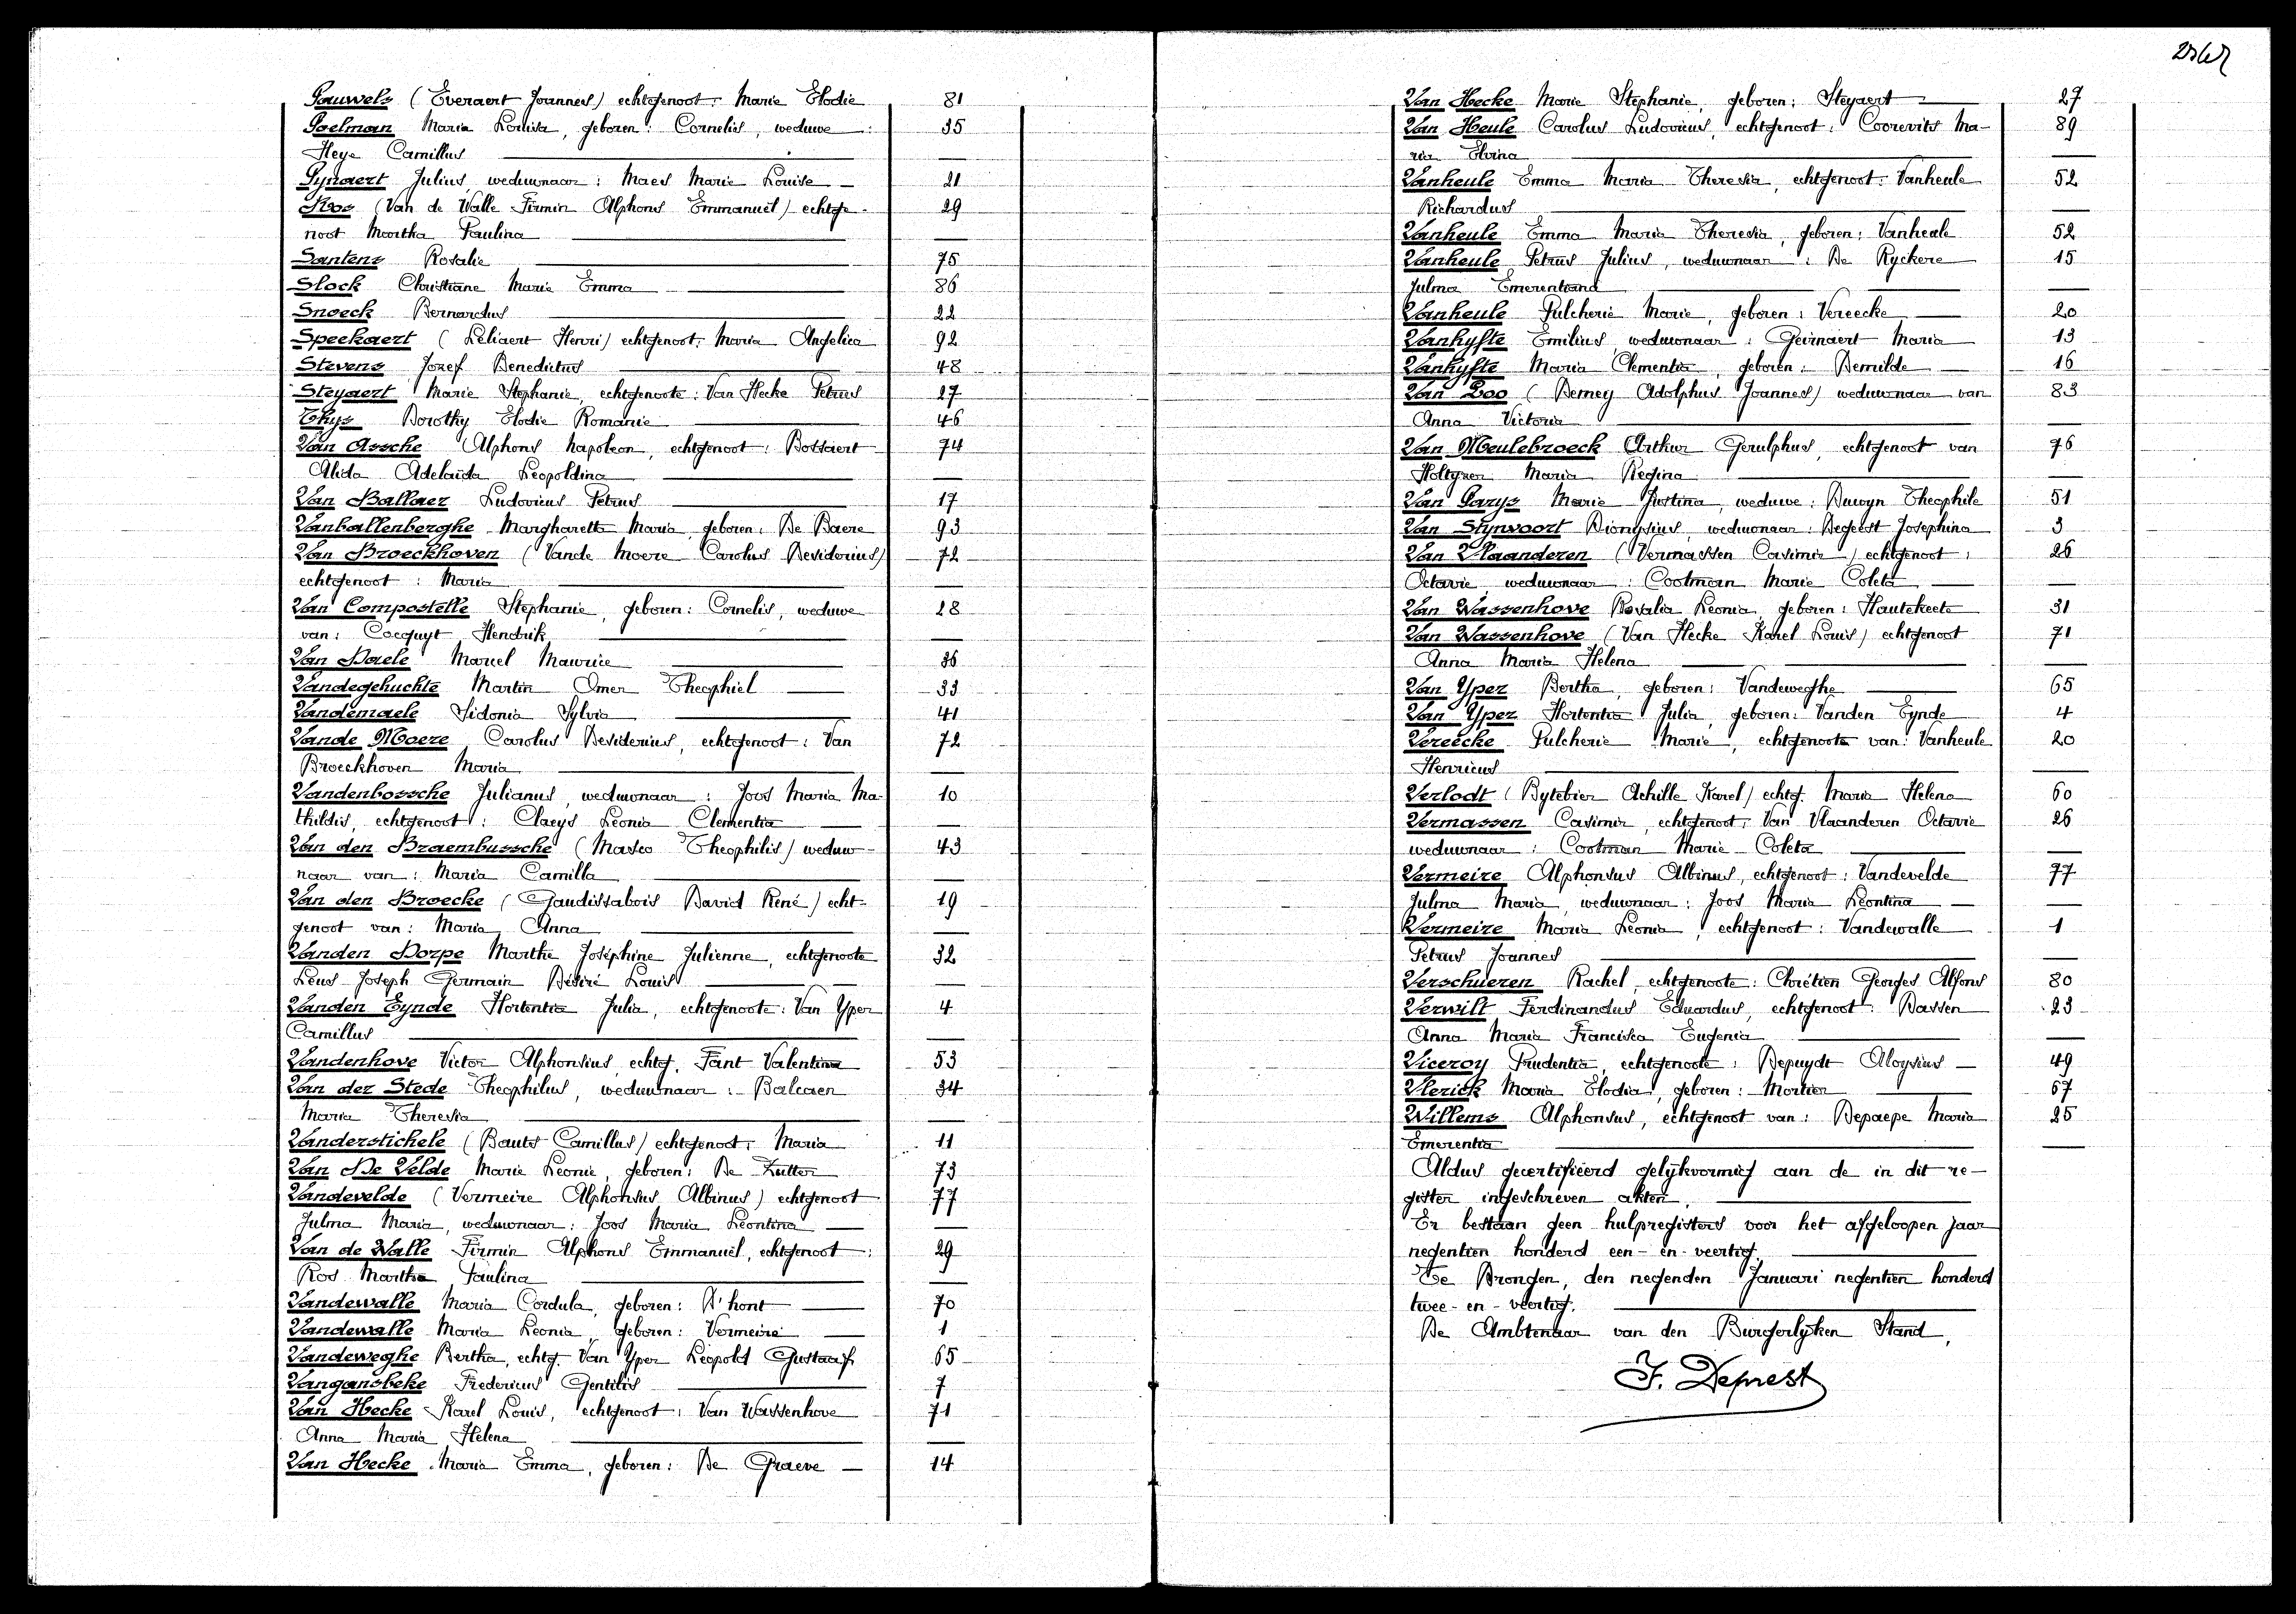 Pauwels (Everaert Joannes) echtgenoot: Marie Elodie 81
Poelman Maria Louisa, geboren: Cornelis, weduwe: 35
Heye Camillus
Pynaert Julius, weduwnaar: Maes Marie Louise 21
Ros (Van de Walle Firmin Alphons Emmanuël) echtge- 29
noot Martha Paulina
Santens Rosalie 75
Slock Christiane Marie Emma 86
Snoeck Bernardus 22
Speekaert (Leliaert Henri) echtgenoot: Maria Angelica 92
Stevens Jozef Benedictus 48
Steyaert Marie Stephanie, echtgenoote: Van Hecke Petrus 27
Thys Dorothy Elodie Romanie 46
Van Assche Alphons Napoleon, echtgenoot: Bossaert 74
Alida Adelaïda Leopoldina
Van Ballaer Ludovicus Petrus 17
Vanballenberghe Margharetta Maria, geboren: De Baere 93
Van Broeckhoven (Vande Moere Carolus Desiderius) 72
echtgenoot: Maria
Van Compostelle Stephanie, geboren: Cornelis, weduwe 28
van: Cocquyt Hendrik
Van Daele Marcel Maurice 36
Vandegehuchte Martin Omer Theophiel 33
Vandemaele Sidonia Sylvia 41
Vande Moere Carolus Desiderius, echtgenoot: Van 72
Broeckhoven Maria
Vandenbossche Julianus, weduwnaar: Joos Maria Ma- 10
thildis, echtgenoot: Claeys Leonia Clementia
Van den Braembussche (Masco Theophilis) weduw- 43
naar van: Maria Camilla
Van den Broecke (Gaudissabois David René) echt- 19
genoot van: Maria Anna
Vanden Dorpe Marthe Joséphine Julienne, echtgenoote 32
Leus Joseph Germain Désiré Louis
Vanden Eynde Hortentia Julia, echtgenoote: Van Yper 4
Camillus
Vandenhove Victor Alphonsius, echtg. Fant Valentina 53
Van der Stede Theophilus, weduwnaar: Balcaen 34
Maria Theresia
Vanderstichele (Bauts Camillus) echtgenoot: Maria 11
Van De Velde Marie Leonie, geboren: De Zutter 73
Vandevelde (Vermeire Alphonsus Albinus) echtgenoot 77
Julma Maria, weduwnaar: Joos Maria Leontina
Van de Walle Firmin Alphons Emmanuël, echtgenoot: 29
Ros Martha Paulina
Vandewalle Maria Cordula, geboren: D'hont 70
Vandewalle Maria Leonia, geboren: Vermeire 1
Vandeweghe Bertha, echtg. Van Yper Leopold Gustaaf 65
Vangansbeke Fredericus Gentilis 7
Van Hecke Karel Louis, echtgenoot: Van Wassenhove 71
Anna Maria Helena
Van Hecke Maria Emma, geboren: De Graeve 14
Van Hecke Marie Stephanie, geboren: Steyaert 27
Van Heule Carolus Ludovicus, echtgenoot: Coorevits Ma- 89
ria Elvina
Vanheule Emma Maria Theresia, echtgenoot: Vanheule 52
Richardus
Vanheule Emma Maria Theresia, geboren: Vanheule 52
Vanheule Petrus Julius, weduwnaar: De Ryckere 15
Julma Emerentiana
Vanheule Pulcherie Marie, geboren: Vereecke 20
Vanhyfte Emilius, weduwnaar: Geirnaert Maria 13
Vanhyfte Maria Clementia, geboren: Demulde 16
Van Loo (Demey Adolphus Joannes) weduwnaar van 83
Anna Victoria
Van Meulebroeck Arthur Gerulphus, echtgenoot van 76
Holtyzer Maria Regina
Van Parys Marie Justina, weduwe: Duwyn Theophile 51
Van Synvoort Dionysius, weduwnaar: Degeest Josephina 3
Van Vlaanderen (Vermassen Casimir) echtgenoot: 26
Octavie, weduwnaar: Cootman Marie Coleta
Van Wassenhove Rosalia Leonia, geboren: Hautekeete 31
Van Wassenhove (Van Hecke Karel Louis) echtgenoot 71
Anna Maria Helena
Van Yper Bertha, geboren: Vandeweghe 65
Van Yper Hortentia Julia, geboren: Vanden Eynde 4
Vereecke Pulcherie Marie, echtgenoote van: Vanheule 20
Henricus
Verlodt (Bytebier Achille Karel) echtg. Maria Helena 60
Vermassen Casimir, echtgenoot: Van Vlaanderen Octavie 26
weduwnaar: Cootman Marie Coleta
Vermeire Alphonsus Albinus, echtgenoot: Vandevelde 77
Julma Maria, weduwnaar: Joos Maria Leontina
Vermeire Maria Leonia, echtgenoot: Vandewalle 1
Petrus Joannes
Verschueren Rachel, echtgenoote: Chrétien Georges Alfons 80
Verwilt Ferdinandus Eduardus, echtgenoot: Bassen 23
Anna Maria Francisca Eugenia
Viceroy Prudentia, echtgenoote: Depuydt Aloysius 49
Vlerick Maria Elodia, geboren: Mortier 67
Willems Alphonsus, echtgenoot van: Depaepe Maria 25
Emerentia
Aldus gecertifieerd gelijkvormig aan de in dit re-
gister ingeschreven akten.
Er bestaan geen hulpregisters voor het afgeloopen jaar
negentien honderd een-en-veertig.
Te Drongen, den negenden Januari negentien honderd
twee-en-veertig.
De Ambtenaar van den Burgerlyken Stand,
F. Deprest